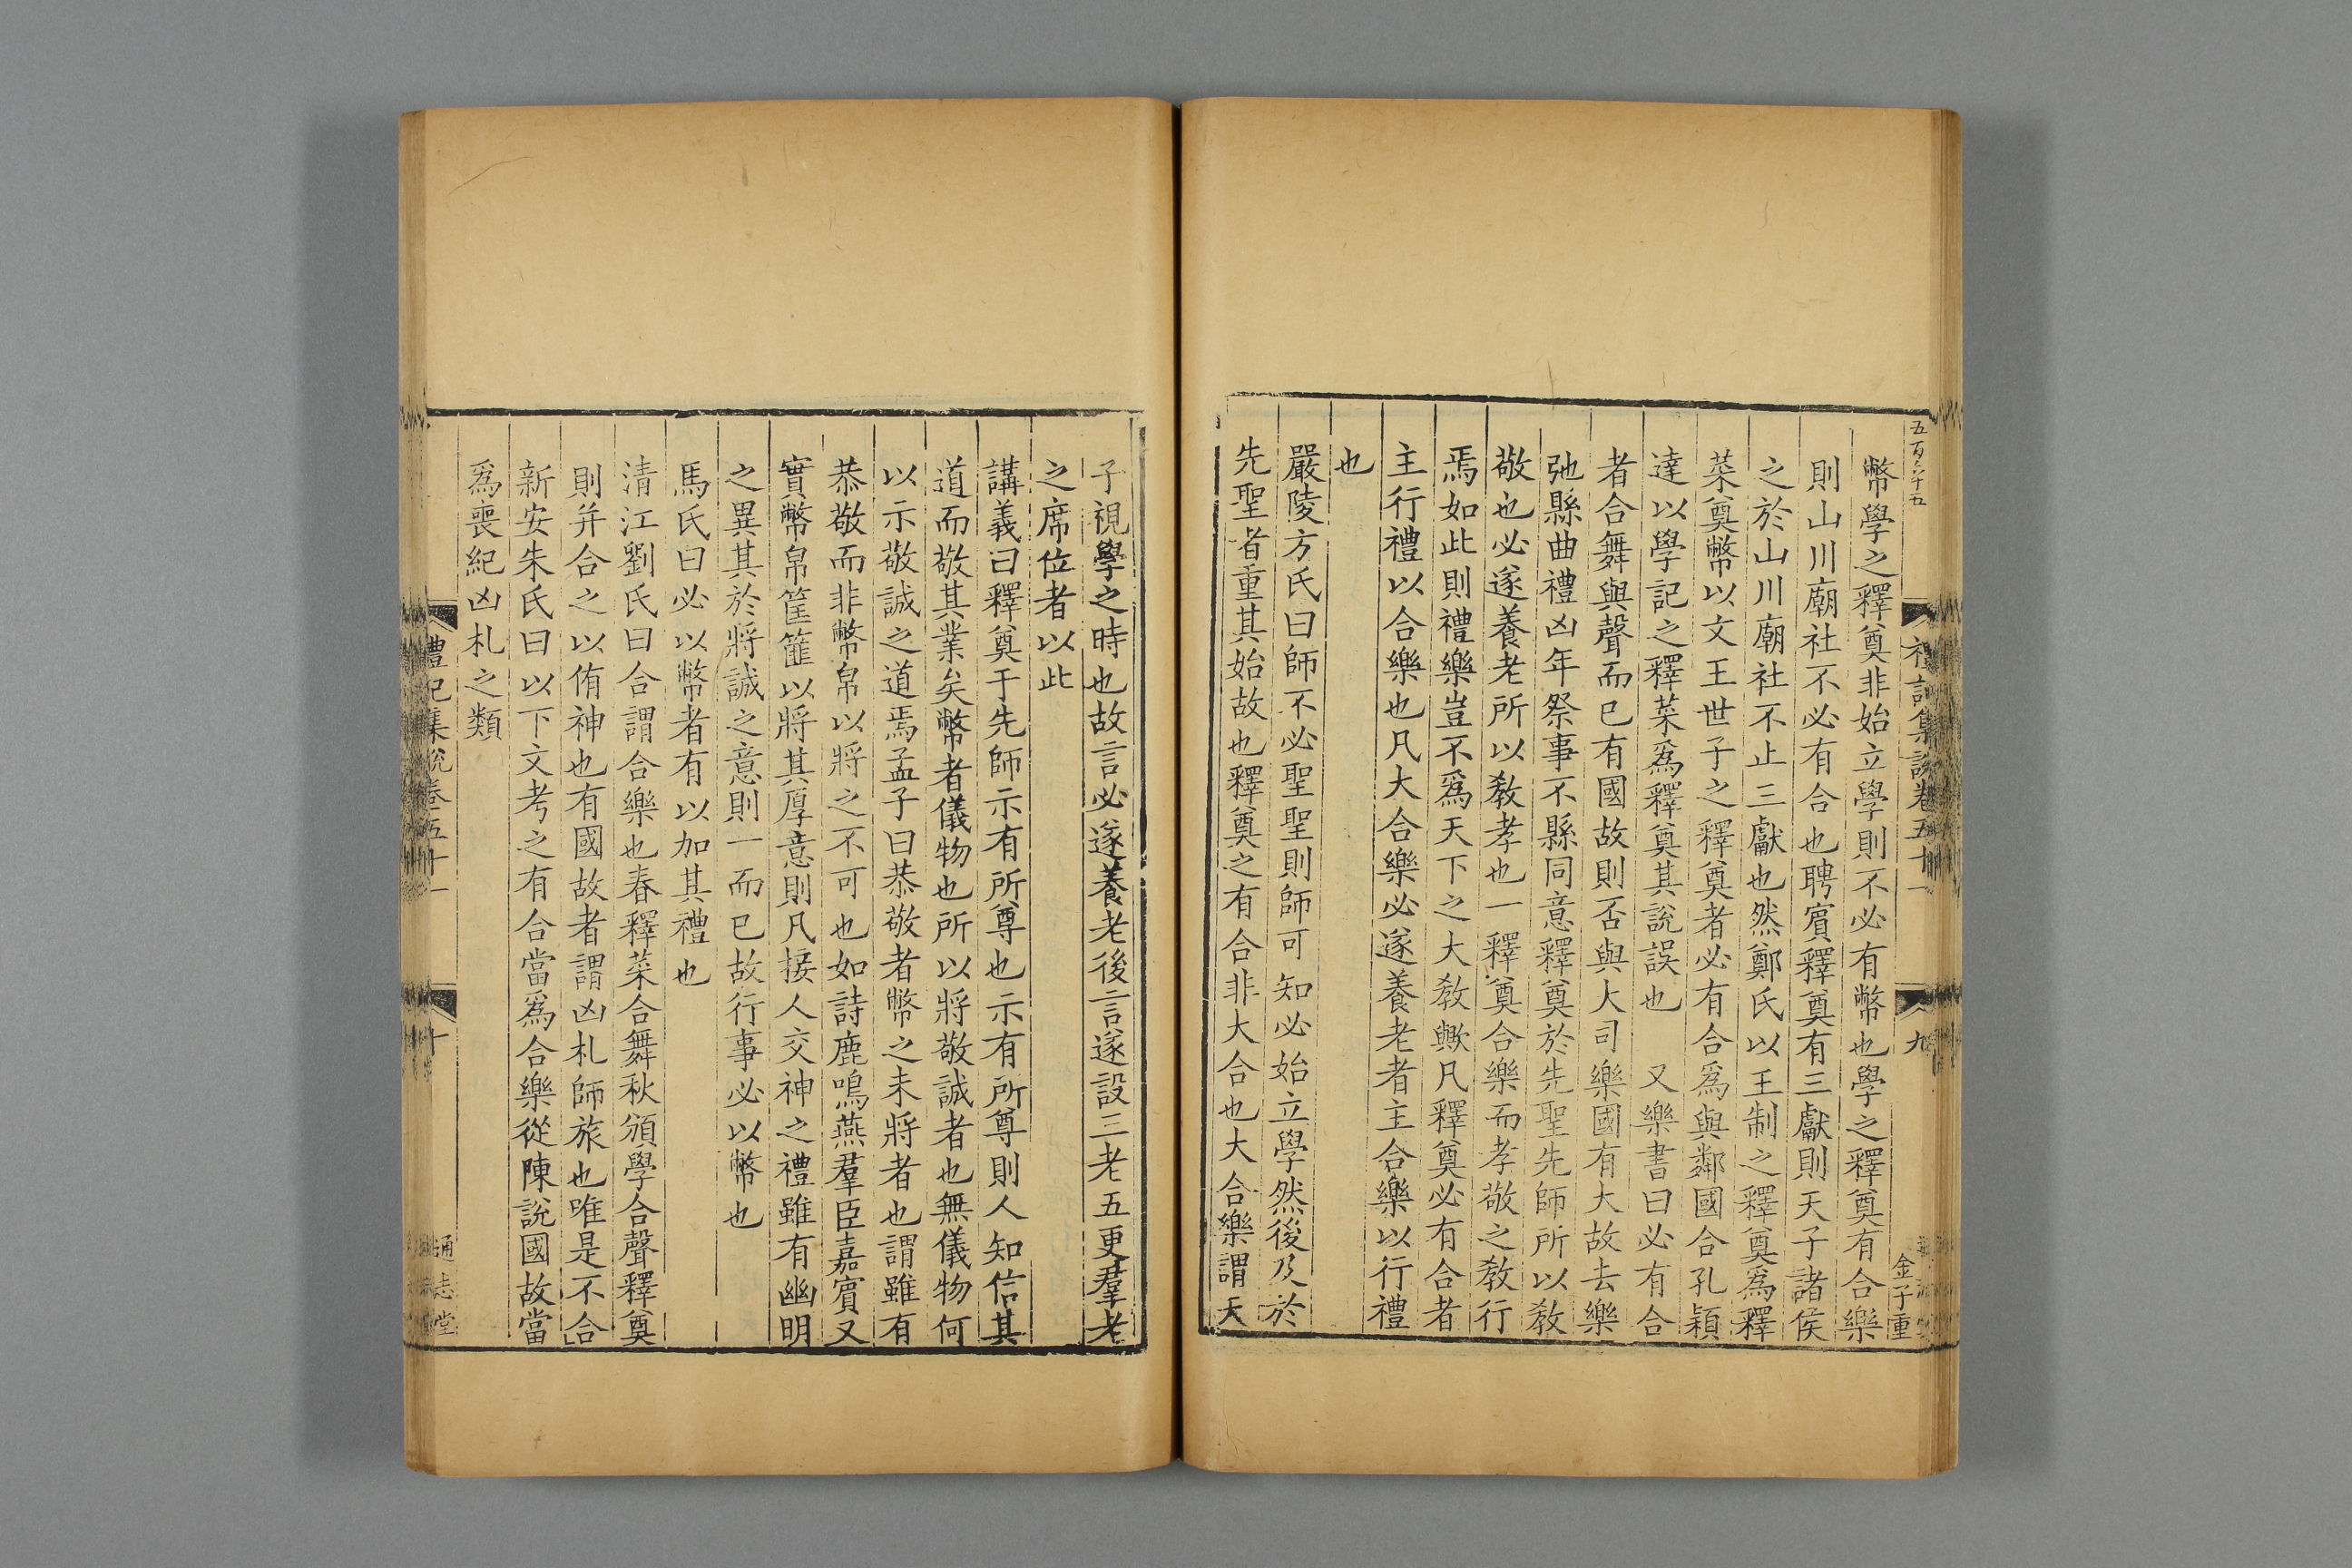 五百六十五
禮記集說卷五十一
九
金子重
幣學之釋奠非始立學則不必有幣也學之釋奠有合樂
則山川廟社不必有合也聘賔釋奠有三獻則天子諸侯
之於山川廟社不止三獻也然鄭氏以王制之釋奠爲釋
菜奠幣以文王世子之釋奠者必有合爲與鄰國合孔穎
達以學記之釋菜爲釋奠其說誤也　又樂書曰必有合
者合舞與聲而已有國故則否與大司樂國有大故去樂
弛縣曲禮凶年祭事不縣同意釋奠於先聖先師所以敎
敬也必遂養老所以敎孝也一釋奠合樂而孝敬之敎行
焉如此則禮樂豈不爲天下之大敎歟凡釋奠必有合者
主行禮以合樂也凡大合樂必遂養老者主合樂以行禮
也
嚴陵方氏曰師不必聖聖則師可知必始立學然後及於
先聖者重其始故也釋奠之有合非大合也大合樂謂天
子視學之時也故言必遂養老後言遂設三老五更羣老
之席位者以此
講義曰釋奠于先師示有所尊也示有所尊則人知信其
道而敬其業矣幣者儀物也所以將敬誠者也無儀物何
以示敬誠之道焉孟子曰恭敬者幣之未將者也謂雖有
恭敬而非幣帛以將之不可也如詩鹿鳴燕羣臣嘉賔又
實幣帛筐篚以將其厚意則凡接人交神之禮雖有幽明
之異其於將誠之意則一而已故行事必以幣也
馬氏曰必以幣者有以加其禮也
清江劉氏曰合謂合樂也春釋菜合舞秋頒學合聲釋奠
則并合之以侑神也有國故者謂凶札師旅也唯是不合
新安朱氏曰以下文考之有合當爲合樂從陳說國故當
爲喪紀凶札之類
禮記集說卷五十一
十
通志堂